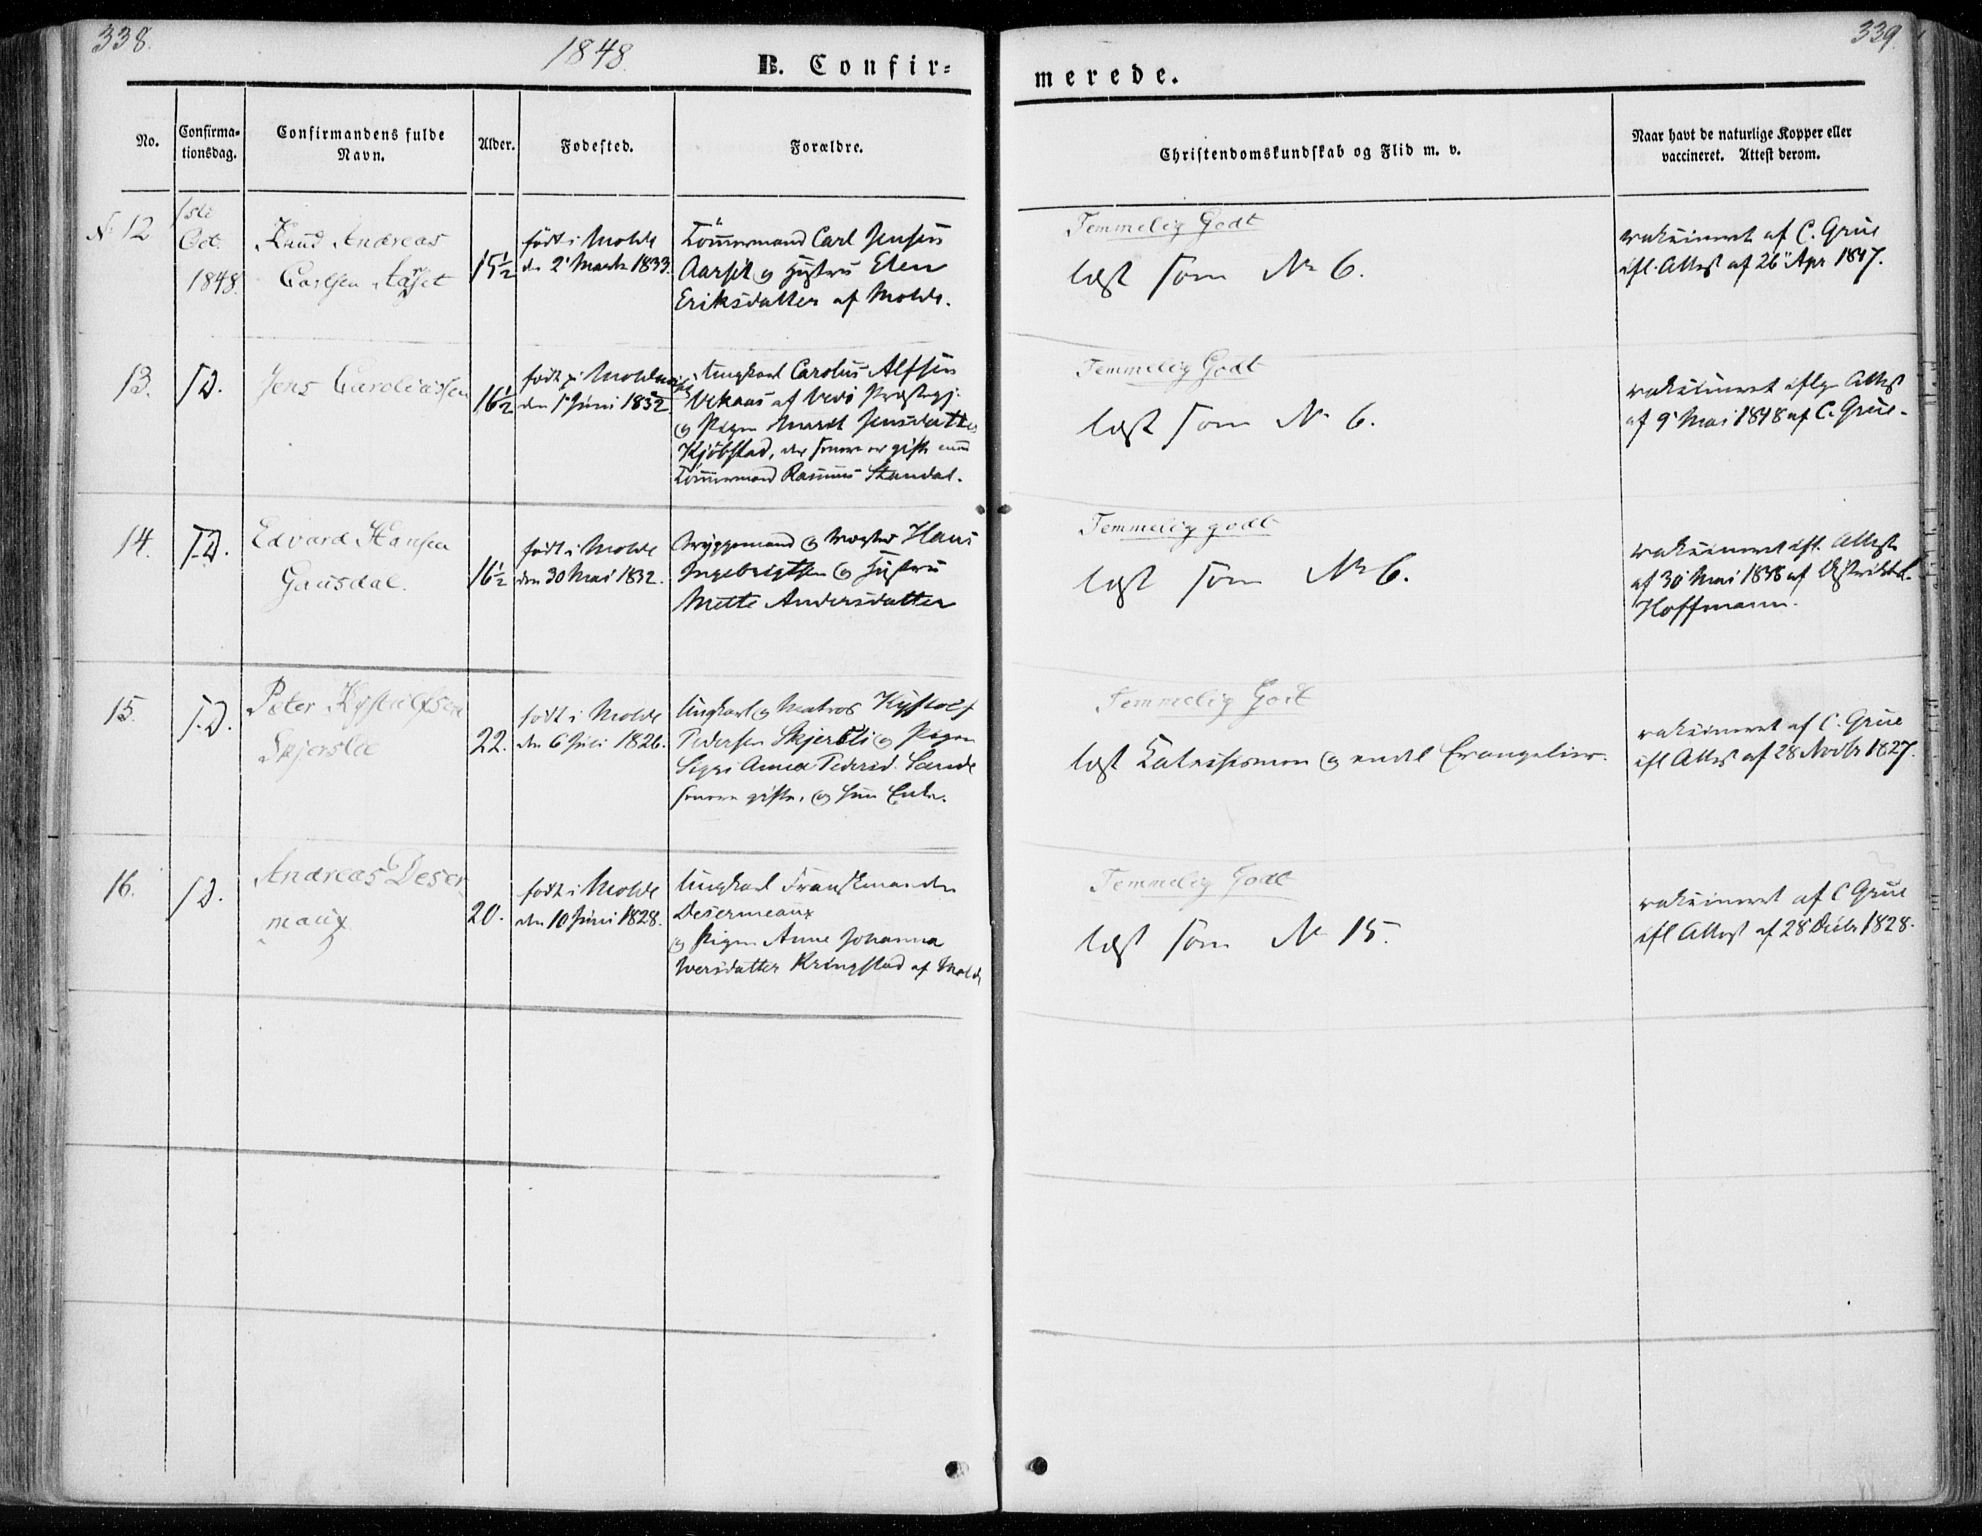 338.
1848.
B. Confir=
merede.
339.
No.
Confirma=
tionsdag.
Confirmandens fulde
Navn.
Alder.
Fødested.
Forældre.
Christendomskundskab og Flid m. v.
Naar havt de naturlige Kopper eller
vaccineret. Attest derom.
N. 12
1ste
Oct.
1848.
Knud Andreas
Carlsen Aaset
15½
født i Molde
den 2' Marts 1833.
Tömmermand Carl Jensen
Aarset og Hustru Elen
Eriksdatter af Molde.
Temmelig Godt
læst som No 6.
vaksineret af C. Grüe
ifl. Attest af 26' Apr 1847.
13.
I.D.
Jens Caroliussen
16½
født i Molde
den 1' Juni 1832
Ungkarl Carolus Alfsen
af Vedö Præstegj.
og Pigen Marit Jensdatter
Kjöbstad, der senere er gift med
Tömmermand Rasmus Standal.
Temmelig Godt
læst som No 6.
vaksineret iflg. Attest
af 9' Mai 1848 af C. Grüe.
14.
I.D.
Edvard Hansen
Gausdal.
16½
født i Molde
den 30 Mai 1832.
Bryggemand og Vægter Hans
Ingebrigtsen og Hustru
Mette Andersdatter
Temmelig godt
læst som No 6.
vaksineret ifl. Attest
af 30' Mai 1838 af Distriktsl.
Hoffmann.
15.
I.D.
Peter Kystolfsen
Skjerslie
22.
født i Molde
den 6 Juli 1826.
Ungkarl og Matros Kystolf
Pedersen Skjersli og Pigen
Sigri Anna Pedersd. Sande
senere gifte, og hun Enke.
Temmelig Godt
læst Katekismen og endel Evangelier.
vaksineret af C. Grüe
ifl Attest af 28 Novbr 1827.
16.
I.D.
Andreas Deser
maux
20.
født i Molde
den 10 Juni 1828.
Ungkarl Franskmanden
Desermeaux
og Pigen Anne Johanna
Iversdatter Kringstad af Molde
Temmelig Godt
læst som No 15.
vaksineret af C Grüe
ifl Attest af 28' Decbr 1828.